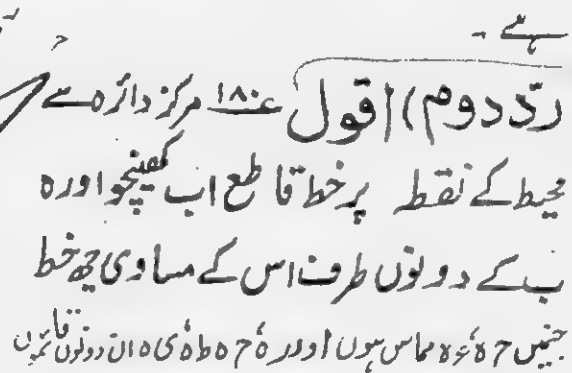 ہے ۔
ردّ دوم) اقول ۱۸۰ مرکز دائرہ سے
محیط کے نقطہ پر خط قاطع اب کھینچو اور ہ
ب کے دونوں طرف اس کے مساوی چھ خط
جنیں ح ہ ء ہ مماس ہوں اور ر ہ ح ہ ط ہ ی ہ ان دونوں قائموں